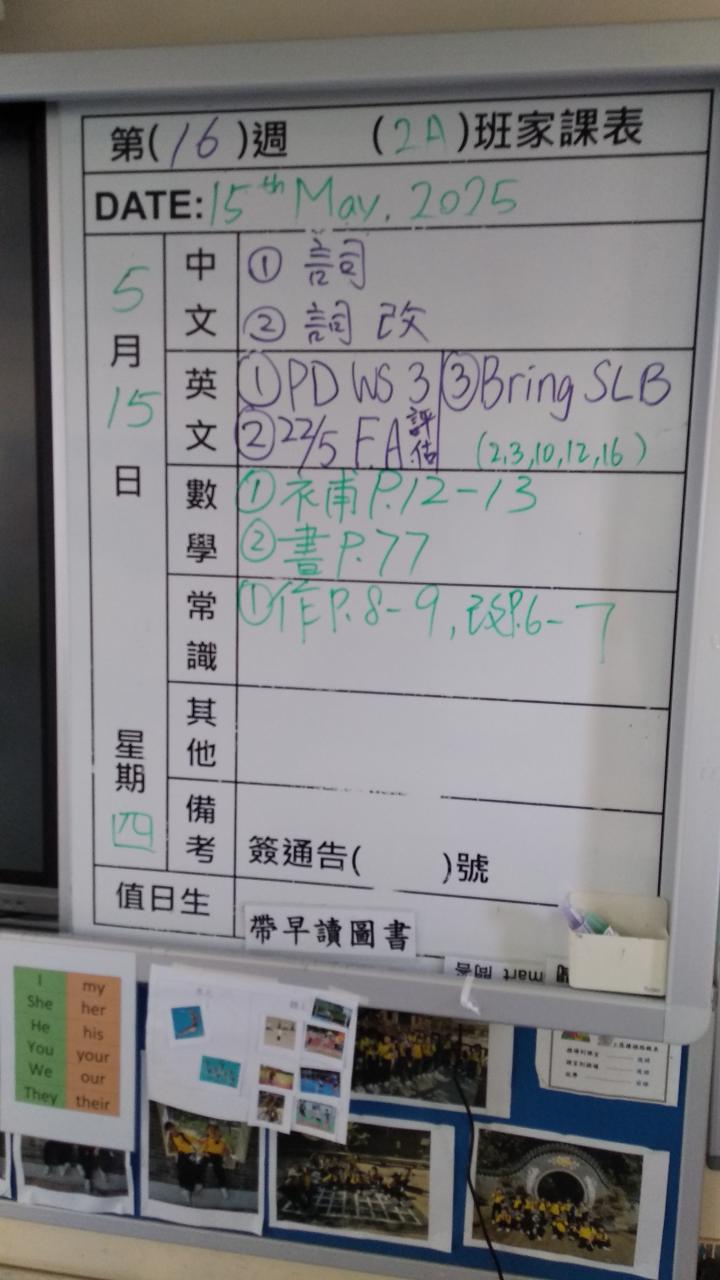 第(16)週 (2A)班家課表
DATE: 15th May, 2025
5月15日 星期四
中文
① 詞
② 詞 改
英文
① PD WS 3 ③ Bring SLB
② 22/5 F.A 評估 (2,3,10,12,16)
數學
① 補 P.12-13
② 書 P.77
常識
① 作 P.8-9, 改P.6-7
其他
備考
簽通告( )號
值日生
帶早讀圖書
I my
She her
He his
You your
We our
They their